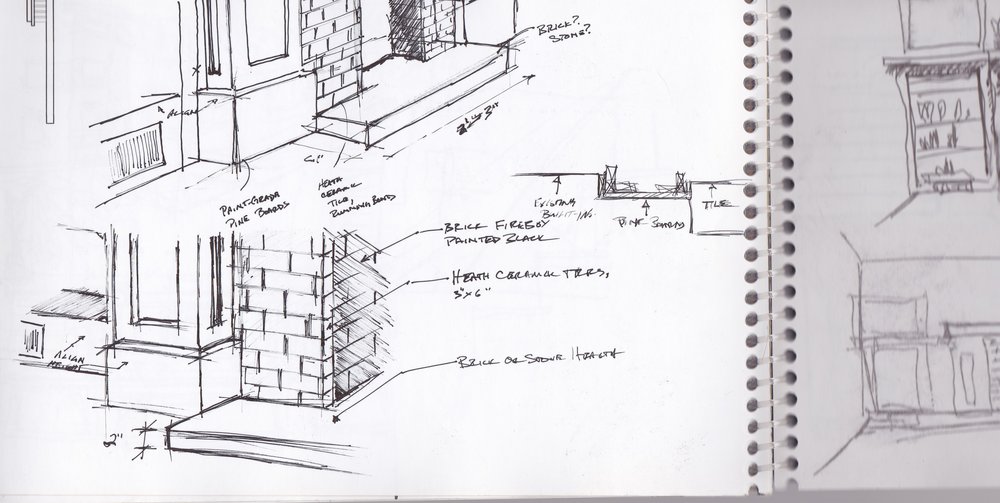 BRICK?
STONE?
ALIGN
6"
PAINT-GRADE
PINE BOARDS
HEATH
CERAMIC
TILE,
RUNNING BOND
EXISTING
BUILT-INS.
PINE BOARDS
TILE
BRICK FIREBOX
PAINTED BLACK
HEATH CERAMIC TILES,
3"x6"
BRICK OR STONE HEARTH
ALIGN
HEIGHT
2"